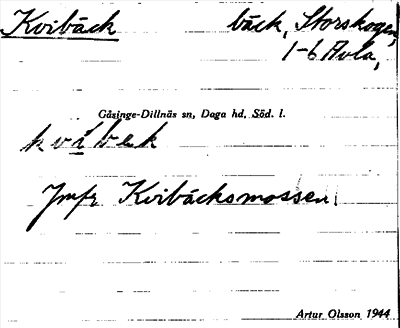 Kvibäck bäck, Storskogen,
1-6 Avla,
Gåsinge-Dillnäs sn, Daga hd, Söd. l.
Jmfr Kvibäcksmossen.
Artur Olsson 1944